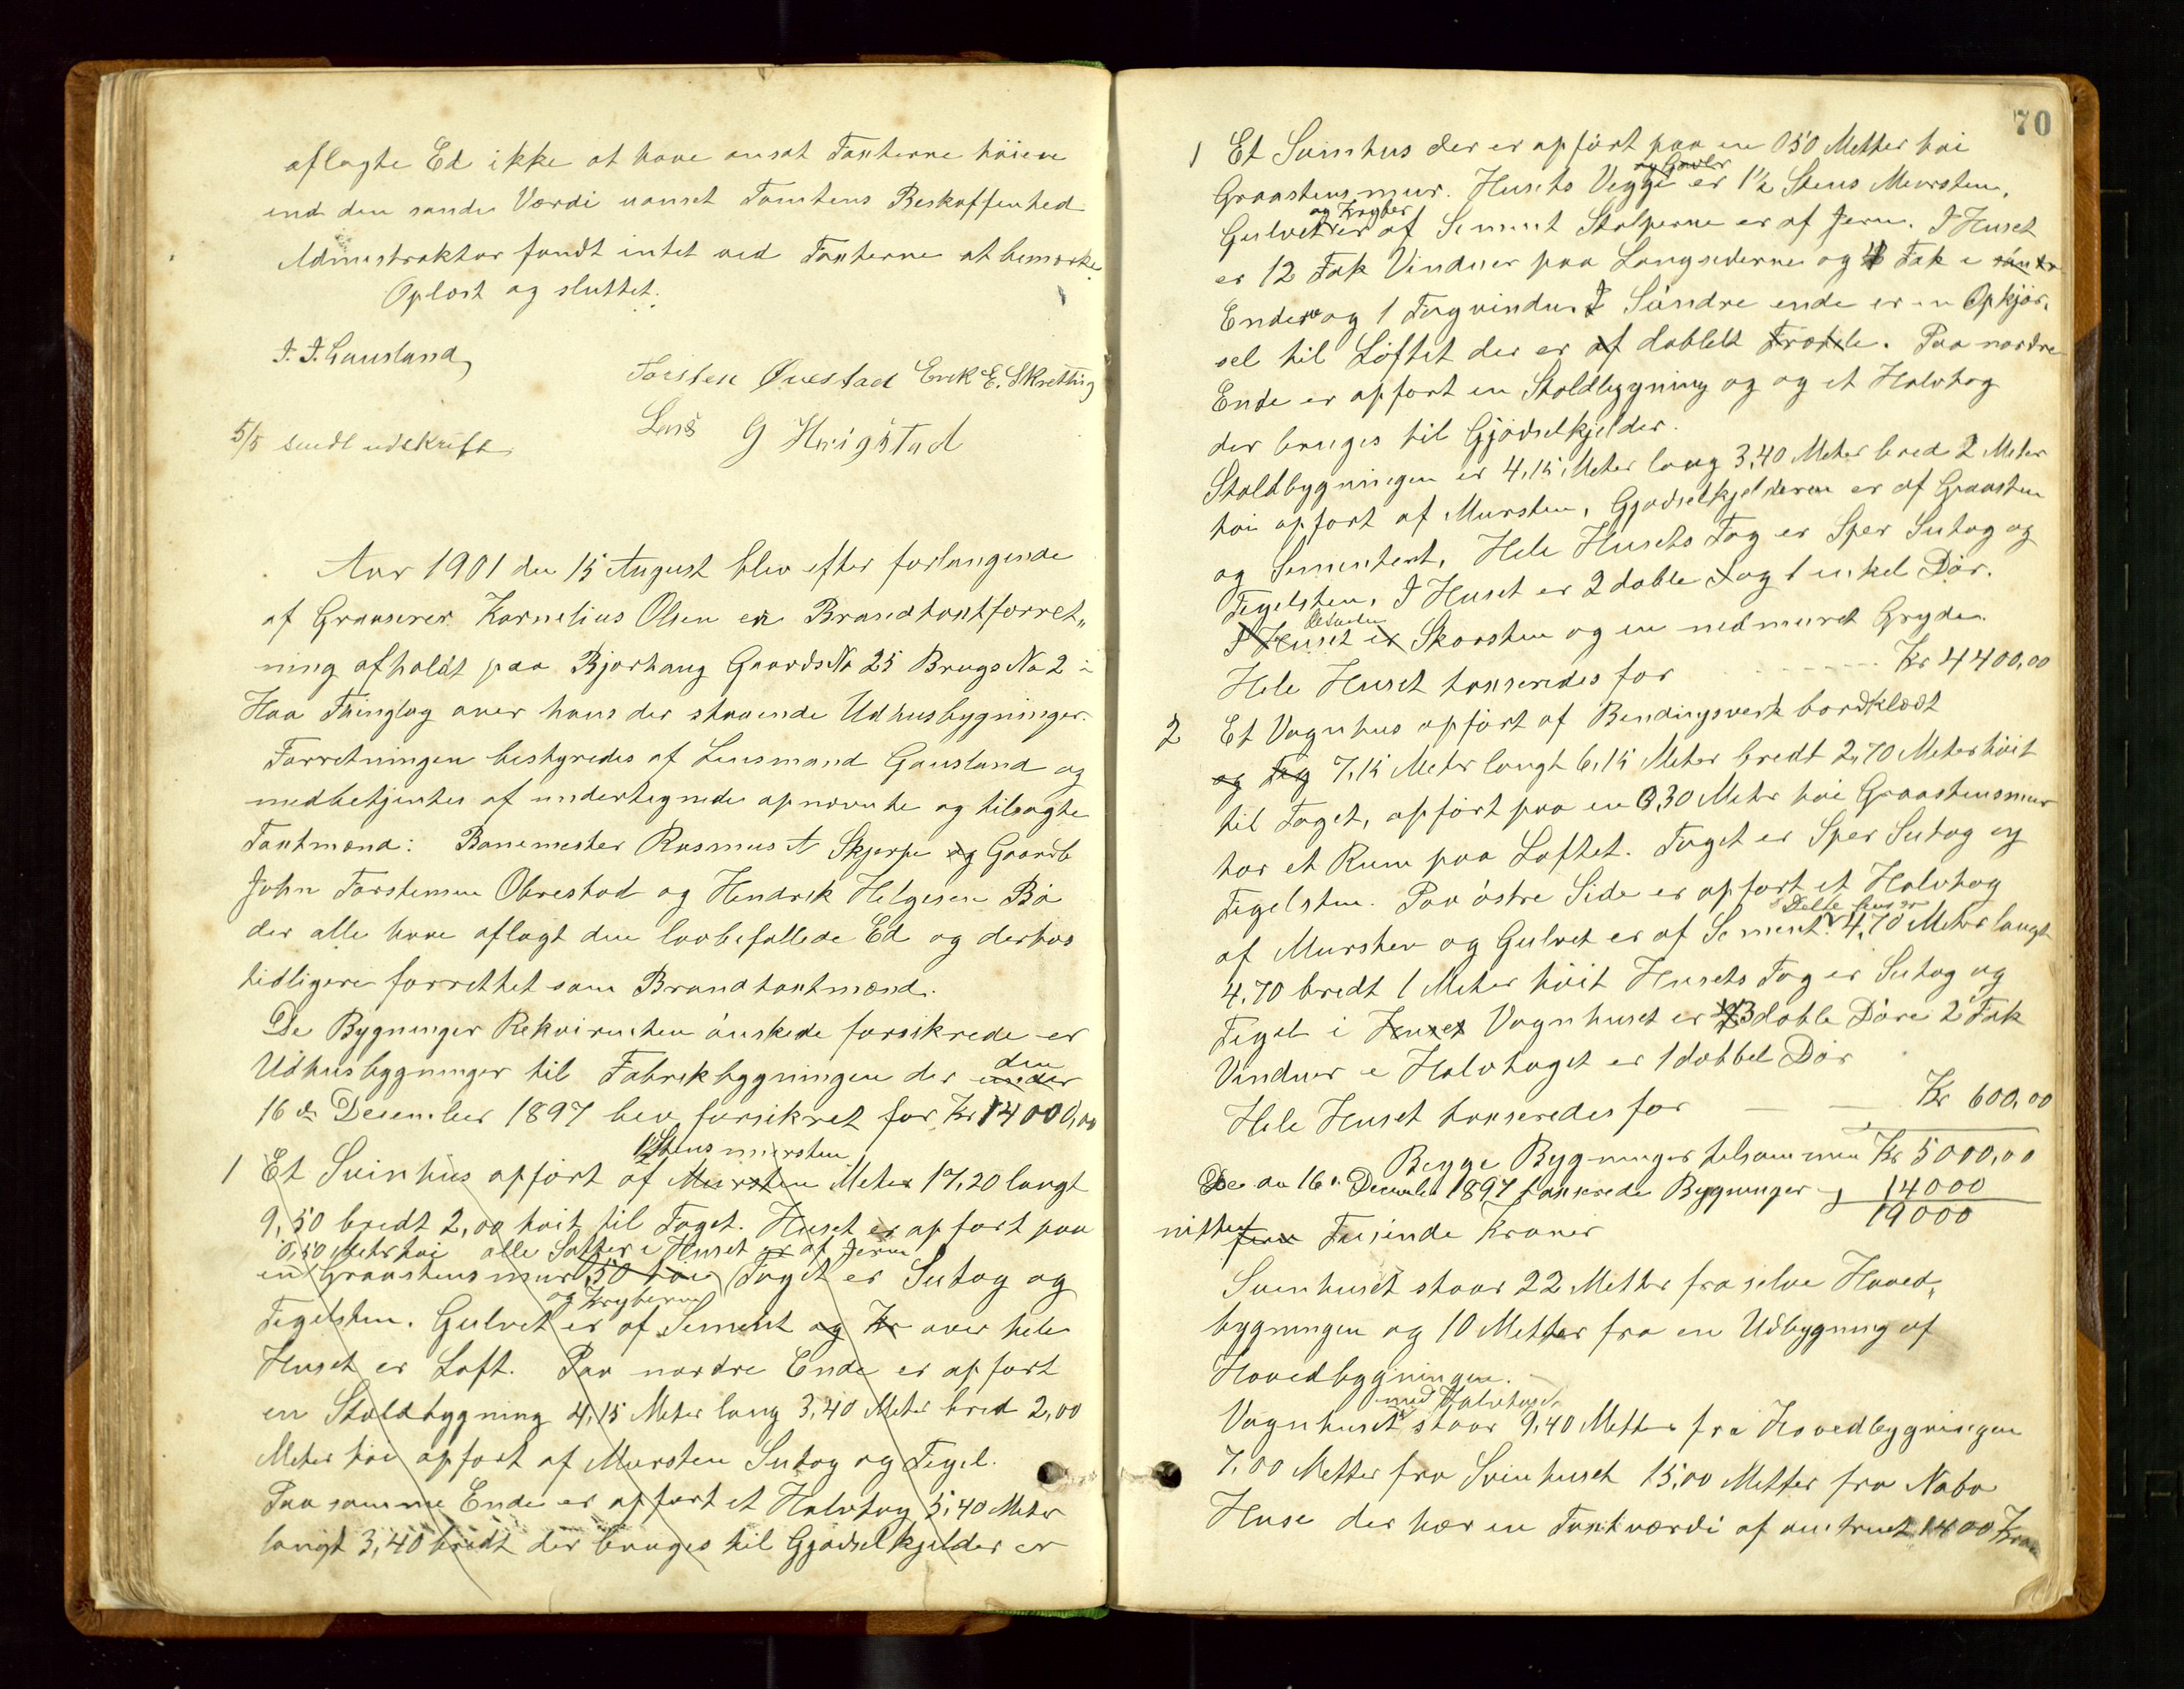 aflagte Ed ikke at have ansat Taxterne høiere
end den sande Værdi uanset Tomtens Beskaffenhed
Admistraktør fandt intet ved Taxterne at bemærke.
Oplæst og sluttet.
J. J. Gausland
Torsten Øvestad Erik E. Skretting
Lars G Haugstad
5/5 sendt udskrift
Aar 1901 den 15 August blev efter forlangende
af Grosserer Kornelius Olsen en Brandtaxtforret„
ning afholdt paa Bjorhaug Gaards No 25 Brugs No 2 i
Haa Thinglag over hans der staaende Udhusbygninger.
Forretningen bestyredes af Lensmand Gausland og
medbetjentes af undertegnede opnævnte og tilsagte
Taxtmænd: Banemester Rasmus A Skjerpe og Gaardb
John Torstensen Obrestad og Hendrik Helgesen Bø
der alle have aflagt den lovbefallede Ed og derhos
tidligere forrettet som Brandtaxtmænd.
De Bygninger Rekvirenten ønskede forsikrede er
den
Udhusbygninger til Fabrikbygningen der under
16de Desember 1897 blev forsikret for Kr 14000,00
1½ Stens mursten
1 Et Svinhus opført af Mursten Meter 17,20 langt
9,50 bredt 2,00 høit til Taget. Huset er opført paa
0,50 Meter høi alle Støtter i Huset er af Jern
en Graastensmur 50 høi Taget er Sutag og
og Krybberne
Tegelsten. Gulvet er af Sement og Kr over hele
Huset er Loft. Paa nordre Ende er opført
en Staldbygning 4,15 Meter lang 3,40 Meter bred 2,00
Meter høi opført af Mursten Sutag og Tegel.
Paa samme Ende er opført et Halvtag 5,40 Meter
langt 3,40 bredt der bruges til Gjødselkjelder er
70
1 Et Svinhus der er opført paa en 050 Metter høi
og Gavler
Graastensmur. Husets Vegge er 1½ Stens Mursten,
og Krybber
Gulvet er af Sement Stolperne er af Jern. I Huset
er 12 Fak Vinduer paa Langsiderne og 4 Fak i søndre
Endene og 1 Tagvindu. I Søndre ende er en Opkjør„
sel til Løftet der er af dobbelt Træhele. Paa nordre
Ende er opført en Staldbygning og og et Halvtag
der bruges til Gjødselkjelder.
Staldbygningen er 4,15 Meter lang 3,40 Meter bred 2 Meter
høi opført af Mursten, Gjødselkjelderen er af Graasten
og Sementert, Hele Husets Tag er Sper Sutag og
Tegelsten, I Huset er 2 doble og 1 enkel Dør.
desuden
I Huset er Skorsten og en nedmuret Gryde.
Hele Huset taxseredes for ------ Kr 4400,00
2 Et Vognhus opført af Bendingsverk bordklædt
og Teg 7,15 Meter langt 6,15 Meter bredt 2,70 Meter høit
til Taget, opført paa en 0,30 Meter høi Graastensmur
har et Rum paa Loftet. Taget er Sper Sutag og
Tegelsten. Paa østre Side er opført et Halvtag
Dette hus er
af Mursten og Gulvet er af Sement. 4,70 Meter langt
4,70 bredt 1 Meter høit Husets Tag er Sutag og
Tegel i Huset Vognhuset er 3 doble Døre 2 Fak
Vinduer i Halvtaget er 1 dobbel Dør
Hele Huset taxseredes for — Kr 600,00
Begge Bygninger tilsammen Kr 5000,00
De den 16de Desember 1897 taxserede Bygninger „ 14000
19000
nitten fem Tusinde Kroner
Svinhuset staar 22 Metter fra selve Hoved„
bygningen og 10 Metter fra en Udbygning af
Hovedbygningen.
med Halvtaget
Vognhuset staar 9,40 Metter fra Hovedbygningen
7,00 Metter fra Svinhuset 15,00 Metter fra Nabo
Huse der har en Taxtværdi af omtrent 1400 Kroner